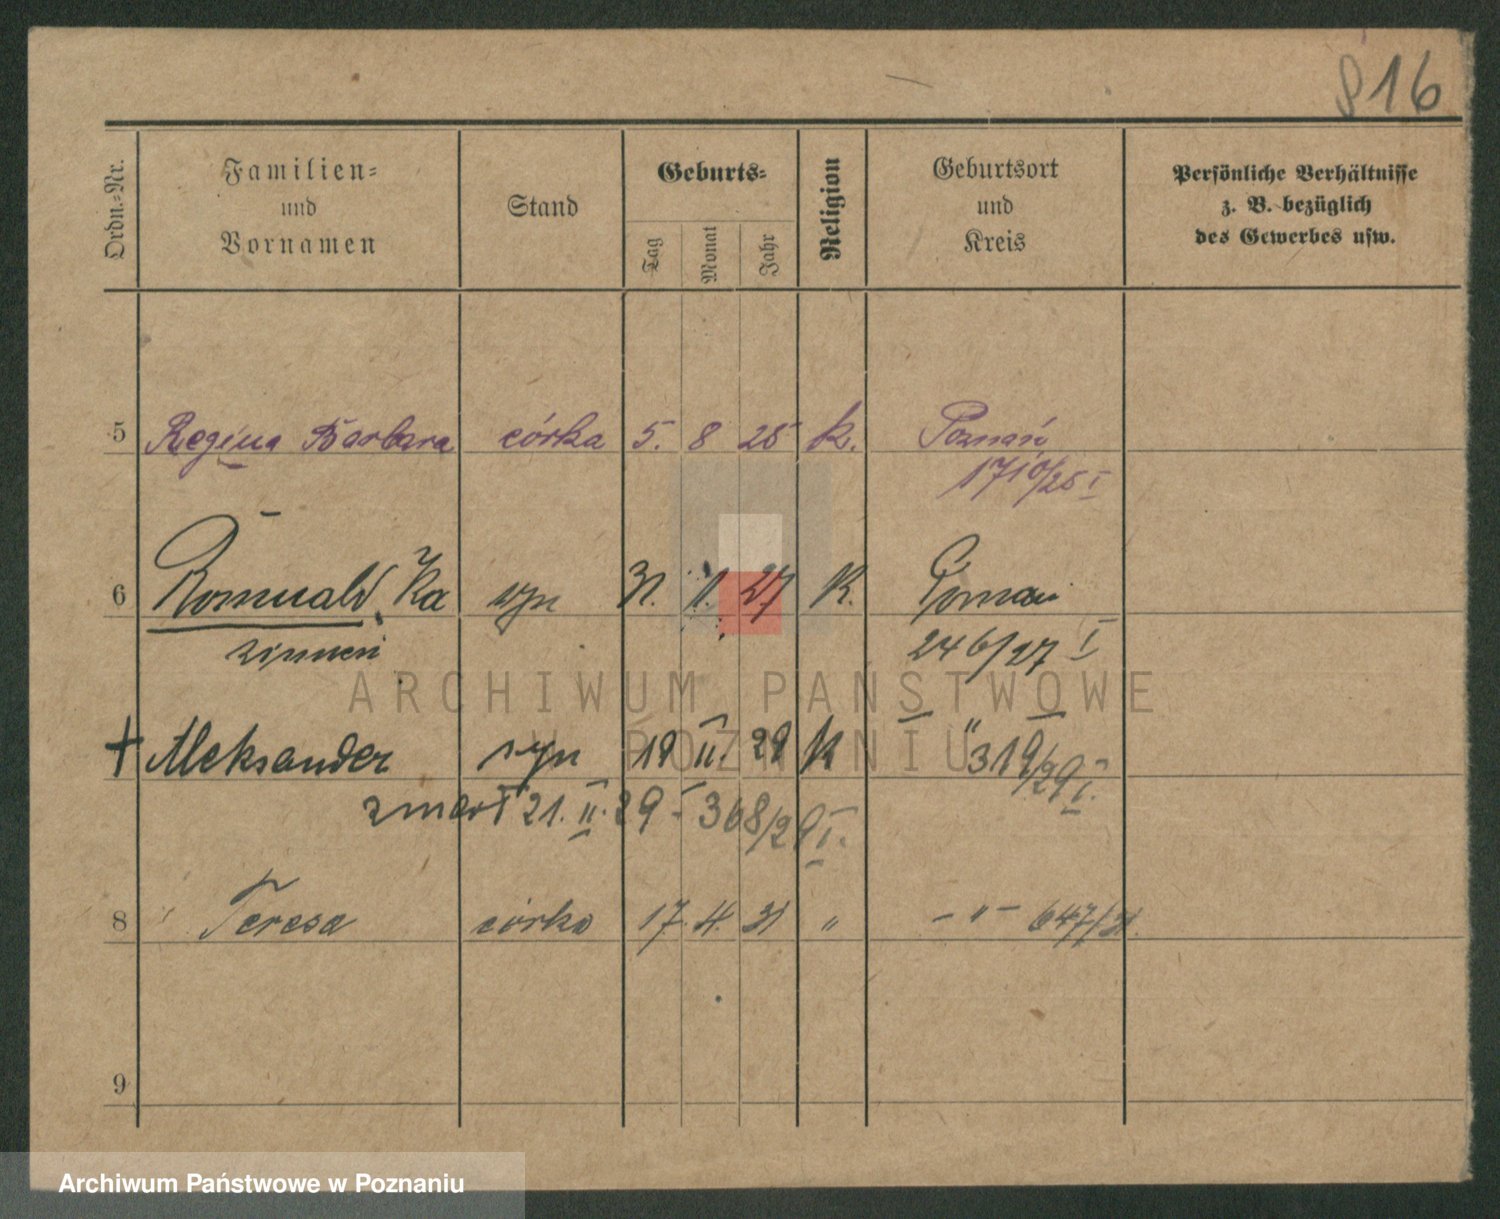 816
Ordn.-Nr.
Familien-
und
Vornamen
Stand
Geburts-
Tag
Monat
Jahr
Religion
Geburtsort
und
Kreis
Persönliche Verhältnisse
z. B. bezüglich
des Gewerbes usw.
5 Regina Barbara córka 5. 8 25 k. Poznań
1710/25 I
6 Romuald, Ka syn 31. 1. 27 K. Poznań
zimierz 246/27 I
+ Aleksander syn 19 II. 29 K – " – 319/29 I.
zmarł 21. II. 29 - 368/29 I.
8 Teresa córka 17. 4. 31 " – " – 647/31.
9
ARCHIWUM PAŃSTWOWE
W POZNANIU
Archiwum Państwowe w Poznaniu